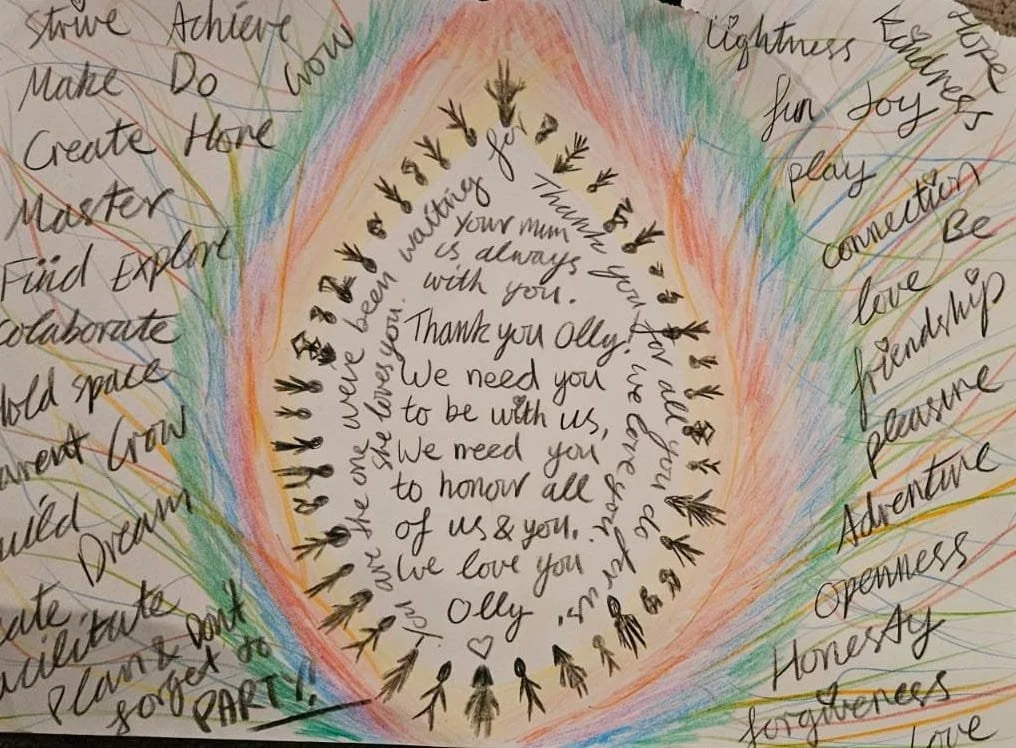 Strive Achieve
Make Do Grow
Create Hone
Master
Find Explore
colaborate
Hold space
Parent Grow
Build
Dream
facilitate
Plan & Dont
forget to
PARTY!!
You are the one we've been waiting for
she loves you.
Thank you for all you do for us.
we love you.
Your mum
is always
with you.
Thank you Olly!
We need you
to be with us,
We need you
to honour all
of us & you.
We love you
Olly
Lightness Kindness Hope
fun Joy
play
connection
Be
love
friendship
pleasure
Adventure
Openness
Honesty
forgiveness
Love